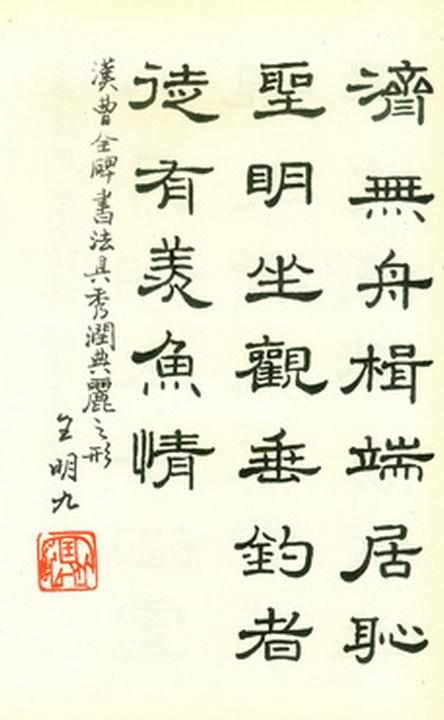 濟無舟楫端居恥
聖明坐觀垂釣者
徒有羨魚情
漢曹全碑書法具秀潤典麗之形
王明九